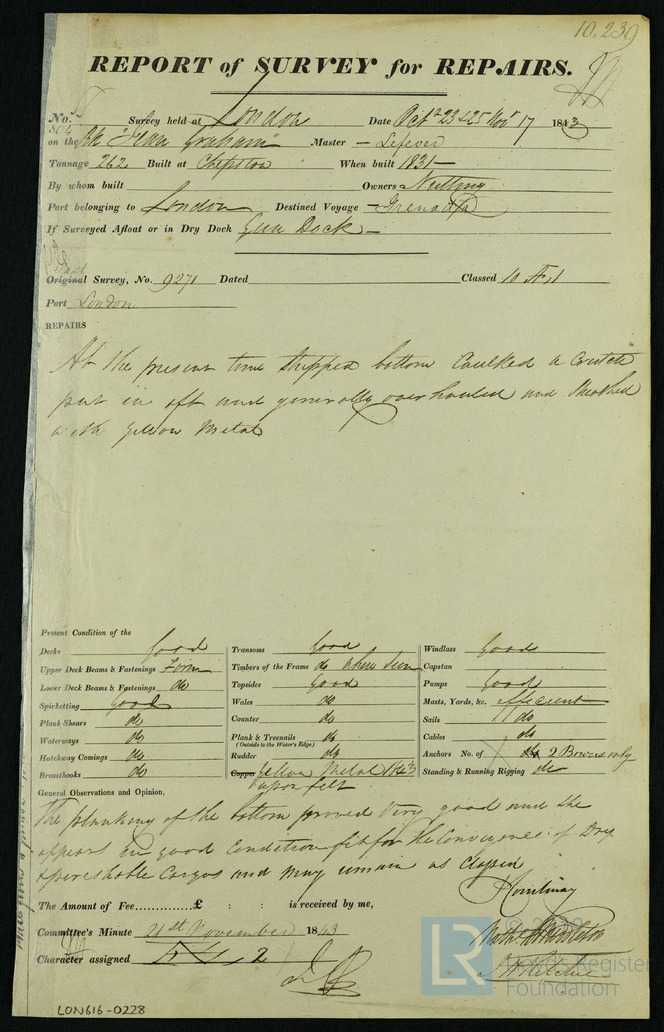 10,239
REPORT of SURVEY for REPAIRS.
No. Survey held at London Date Octr 23 & 25 Novr 17 1843
on the Bk "Jean Graham" Master — Lefevre
Tonnage 262 Built at Chepstow When built 1831 —
By whom built Owners Nutting
Port belonging to London Destined Voyage — Grenada
If Surveyed Afloat or in Dry Dock Gun Dock —
Last
Original Survey, No. 9271 Dated Classed 10 A 1
Port London
REPAIRS
At the present time stripped bottom Caulked a Crutch
put in aft and generally overhauled and sheathed
with Yellow Metal
Present Condition of the
Decks Good Transoms Good Windlass Good
Upper Deck Beams & Fastenings Firm Timbers of the Frame do when seen Capstan
Lower Deck Beams & Fastenings do Topsides Good Pumps Good
Spirketting Good Wales do Masts, Yards, &c. efficient
Plank Shears do Counter do Sails do
Waterways do Plank & Treenails do Cables do
(Outside to the Water's Edge)
Hatchway Comings do Rudder do Anchors No. of 2 Bowers only
Breasthooks do Copper Yellow Metal 1843 Standing & Running Rigging do
upon felt
General Observations and Opinion,
The planking of the bottom proved very good and she
appears in good Condition fit for the Conveyance of Dry
& perishable Cargos and may remain as Classed
The Amount of Fee..............£ : : is received by me,
Committee's Minute 21st November 1843
Character assigned
LON616-0228
LR
© 2022
Lloyd's Register
Foundation